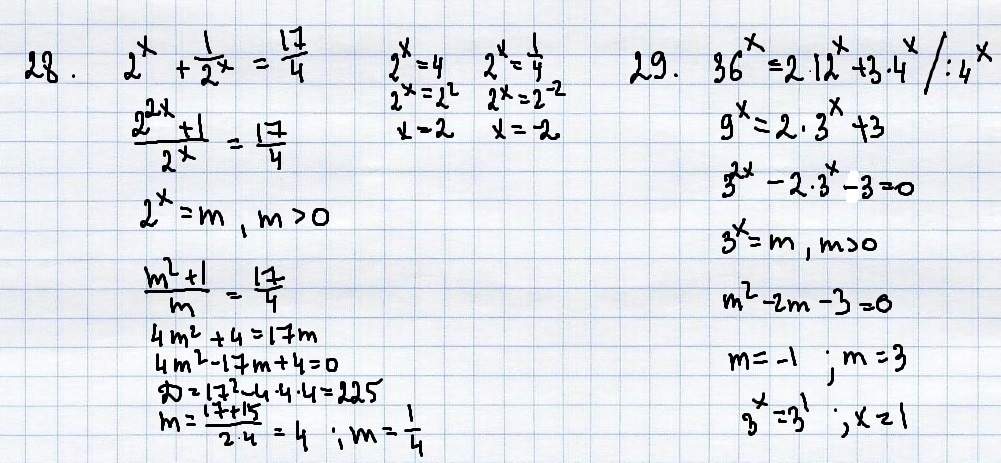 28. 2^x + 1/2^x = 17/4
(2^2x + 1)/2^x = 17/4
2^x = m, m > 0
(m² + 1)/m = 17/4
4m² + 4 = 17m
4m² - 17m + 4 = 0
D = 17² - 4·4·4 = 225
m = (17+15)/(2·4) = 4 ; m = 1/4
2^x = 4 2^x = 1/4
2^x = 2² 2^x = 2^-2
x = 2 x = -2
29. 36^x = 2·12^x + 3·4^x /:4^x
9^x = 2·3^x + 3
3^2x - 2·3^x - 3 = 0
3^x = m, m > 0
m² - 2m - 3 = 0
m = -1 ; m = 3
3^x = 3^1 ; x = 1